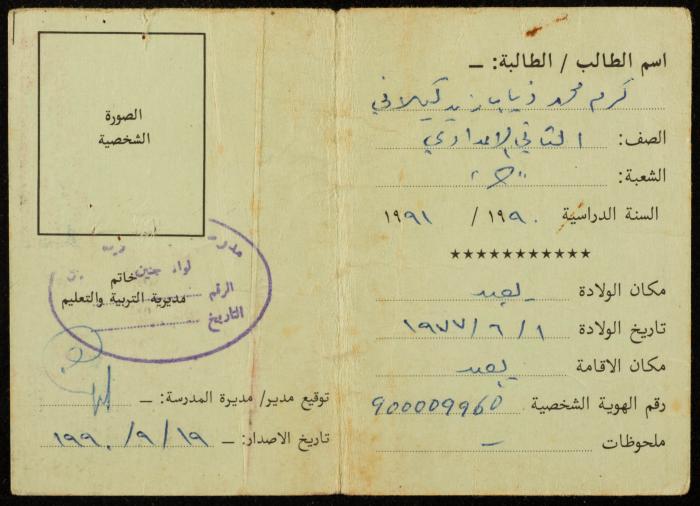 اسم الطالب / الطالبة: ـ
كرم محمد ذياب زيد كيلاني
الصف: الثاني الاعدادي
الشعبة: "ج"
السنة الدراسية ١٩٩٠ / ١٩٩١
***********
مكان الولادة يعبد
تاريخ الولادة ١/٦/١٩٧٧
مكان الاقامة يعبد
رقم الهوية الشخصية 900009960
ملحوظات ـ
الصورة
الشخصية
لواء جنين
خاتم
مديرية التربية والتعليم
الرقم
التاريخ
توقيع مدير/ مديرة المدرسة: ـ
تاريخ الاصدار: ـ ١٩/٩/١٩٩٠